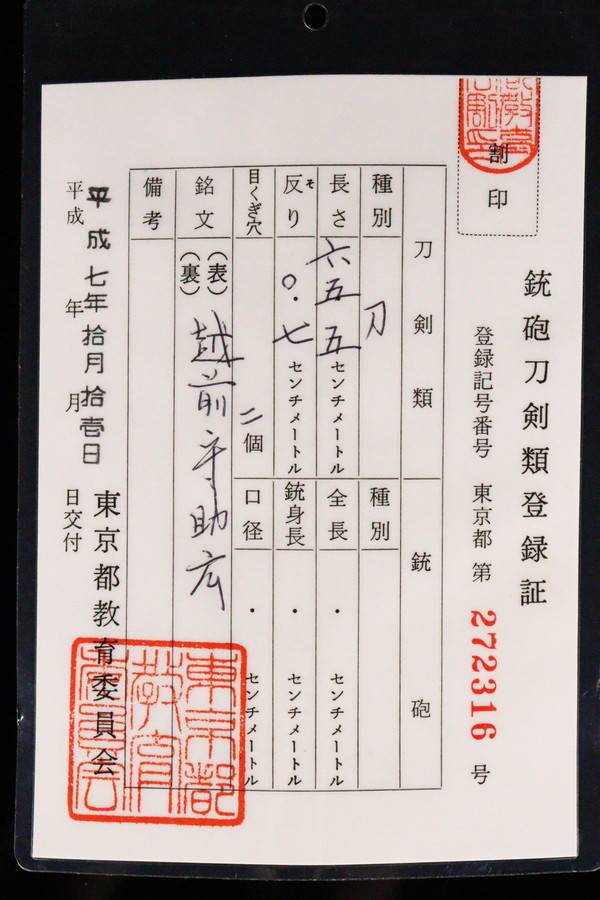 割印
銃砲刀剣類登録証
登録記号番号 東京都 第 272316 号
刀剣類
銃砲
種別 刀
種別
長さ 六五.五 センチメートル
全長 ・ センチメートル
反り ソ 〇.七 センチメートル
銃身長 ・ センチメートル
目くぎ穴 二個
口径 ・ センチメートル
銘文 (表) 越前守助広
(裏)
備考
平成七年拾月拾壱日
平成 年 月 日交付
東京都教育委員会
東京都教育委員会